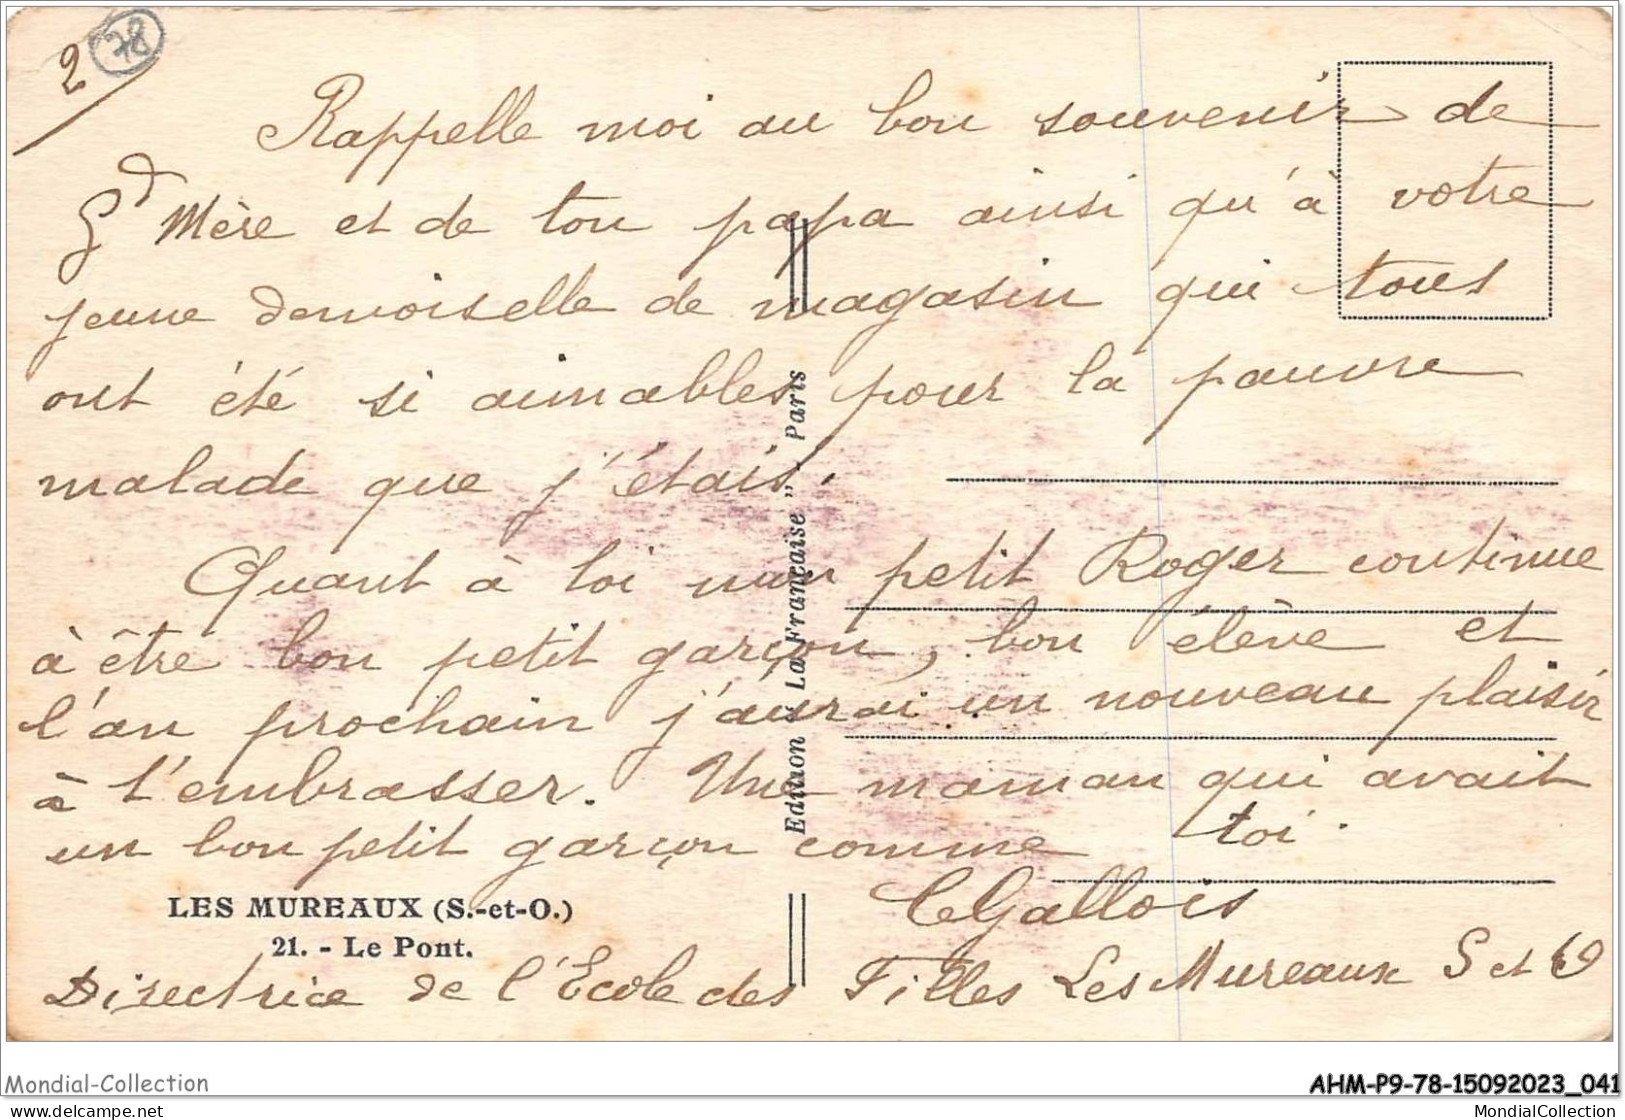 2
78
Rappelle moi au bon souvenir de
Gd Mère et de ton papa ainsi qu'à votre
jeune demoiselle de magasin qui tous
ont été si aimables pour la pauvre
malade que j'étais.
Quant à toi mon petit Roger continue
à être bon petit garçon, bon élève et
l'an prochain j'aurai un nouveau plaisir
à t'embrasser. Une maman qui avait
un bon petit garçon comme toi.
CGallois
Directrice de l'École des Filles Les Mureaux S et O
LES MUREAUX (S.-et-O.)
21. - Le Pont.
Edition "La Française" Paris
Mondial-Collection
AHM-P9-78-15092023_041
delcampe.net
MondialCollection